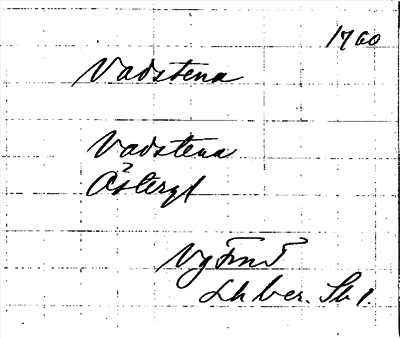 1760
Vadstena
Vadstena
Östergl
VgFmT
Lh ber. Sb 1.